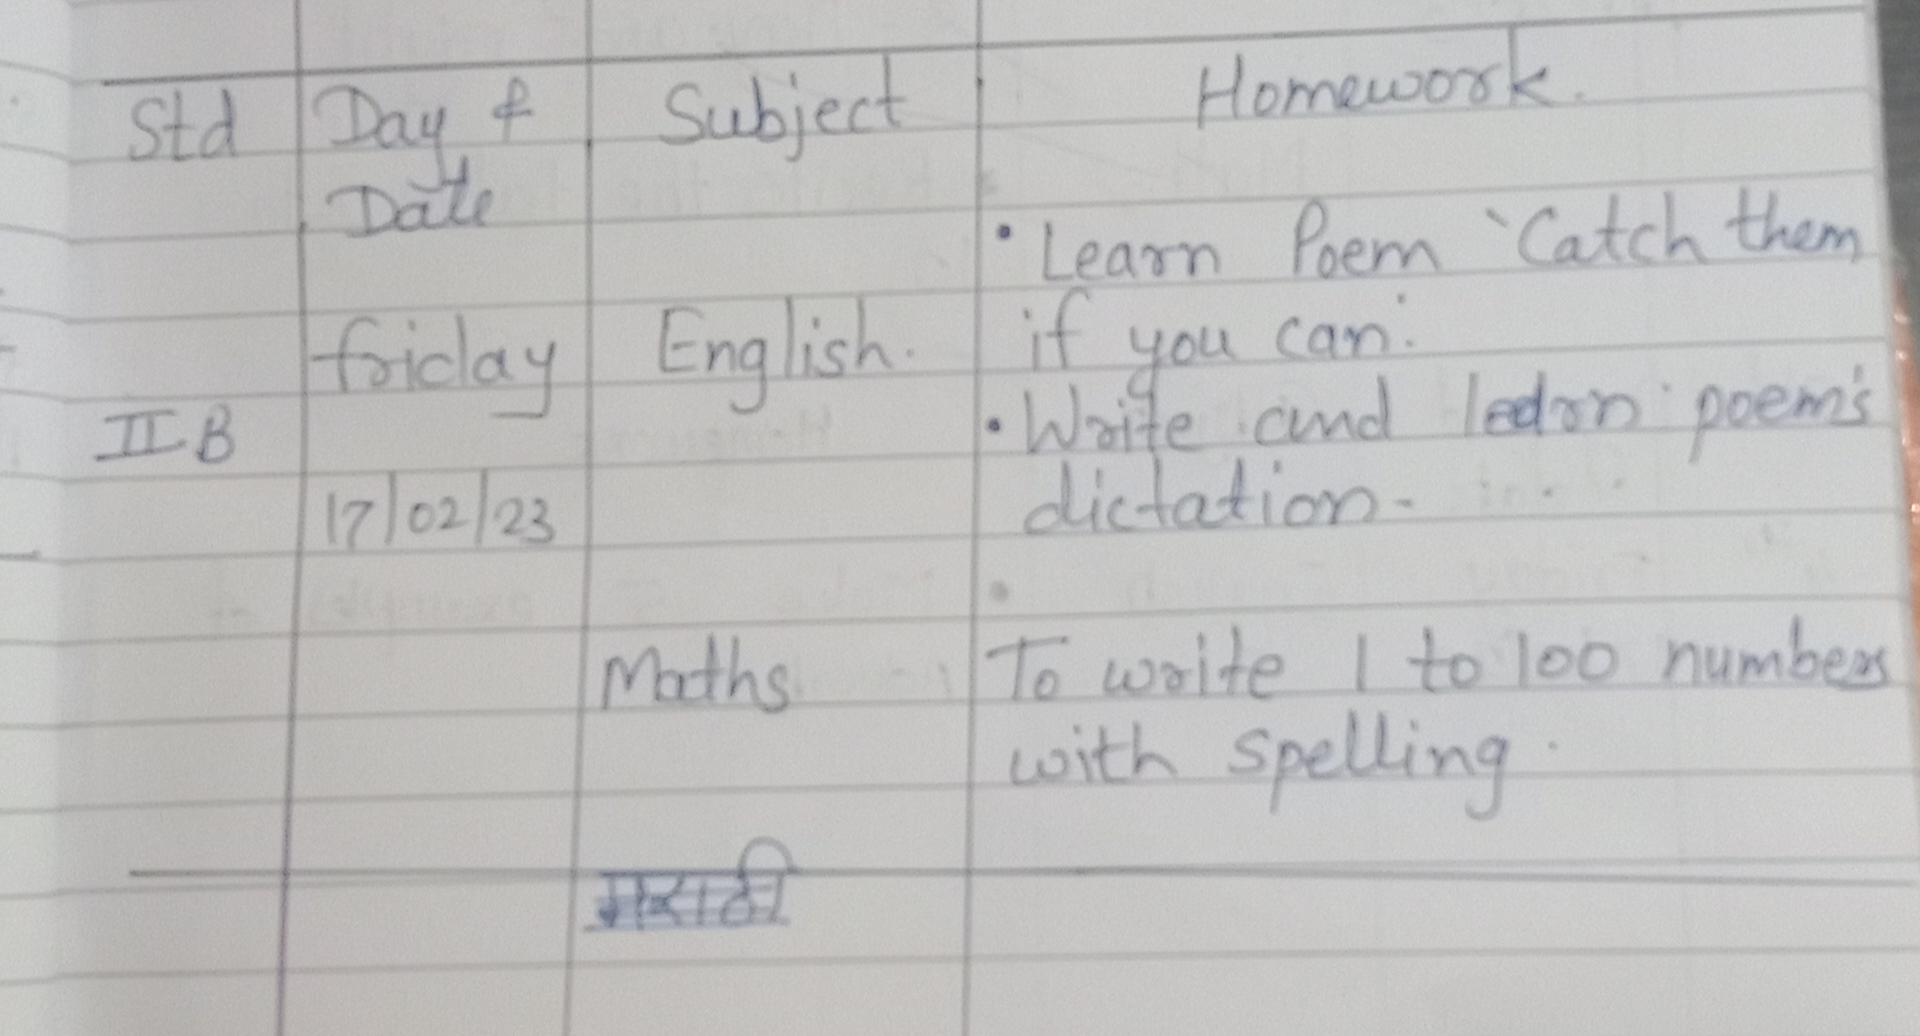 Std Day & Subject Homework.
Date
• Learn Poem 'Catch them
friday English. if you can'.
II B • Write and learn poem's
17/02/23 dictation-
Maths To write 1 to 100 numbers
with spelling.
मराठी